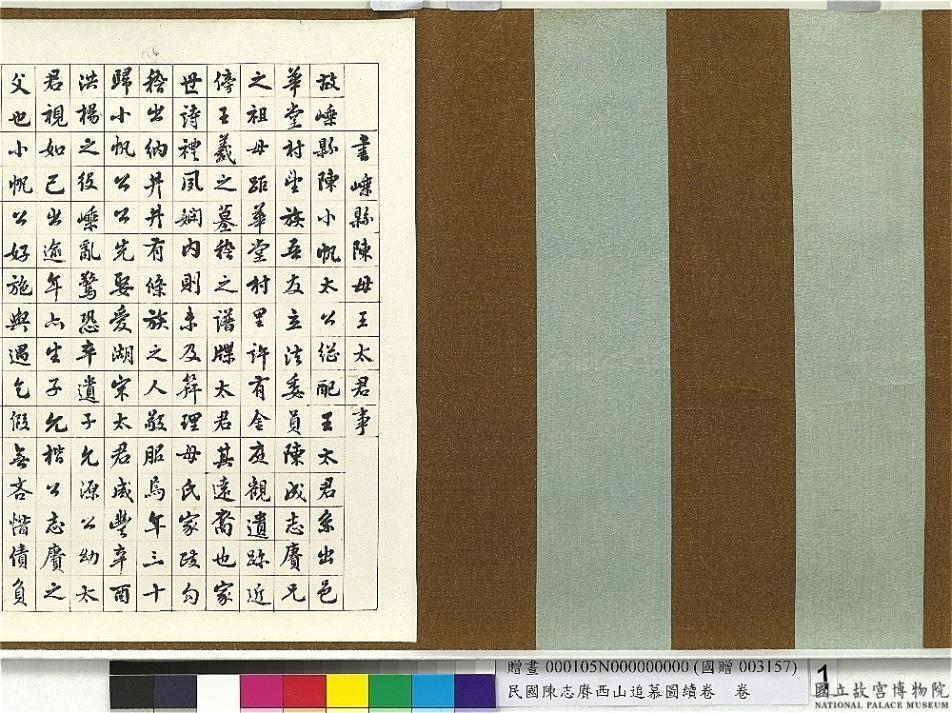 書嵊縣陳母王太君事
故嵊縣陳小帆太公繼配王太君系出邑
華堂村望族吾友立法委員陳成志賡兄
之祖母距華堂村里許有金庭觀遺跡近
傍王羲之墓稽之譜牒太君其遠裔也家
世詩禮夙嫻內則未及筓理母氏家政勾
稽出納井井有條族之人敬服焉年三十
歸小帆公公先娶愛湖宋太君咸豐辛酉
洪楊之役嵊亂驚恐卒遺子允源公幼太
君視如己出逾年亦生子允楷公志賡之
父也小帆公好施與遇乞假無吝惜債負
贈畫 000105N000000000 (國贈 003157)
民國陳志賡西山追慕圖續卷 卷
1
國立故宮博物院
NATIONAL PALACE MUSEUM